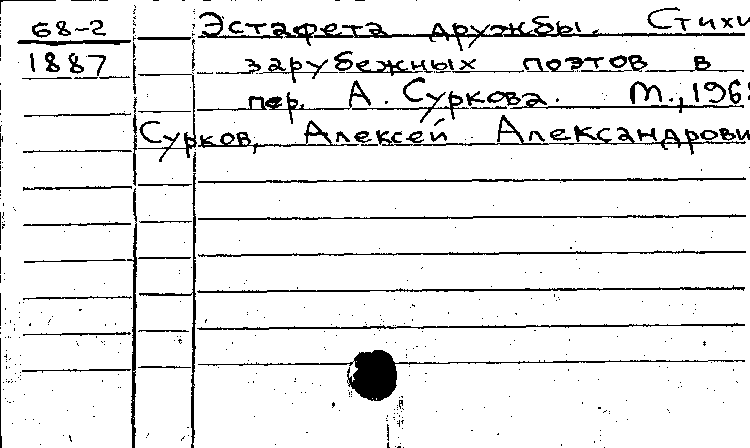 68-2 Эстафета дружбы. Стихи
1887 зарубежных поэтов в
пер. А. Суркова. М., 196
Сурков, Алексей Александрови